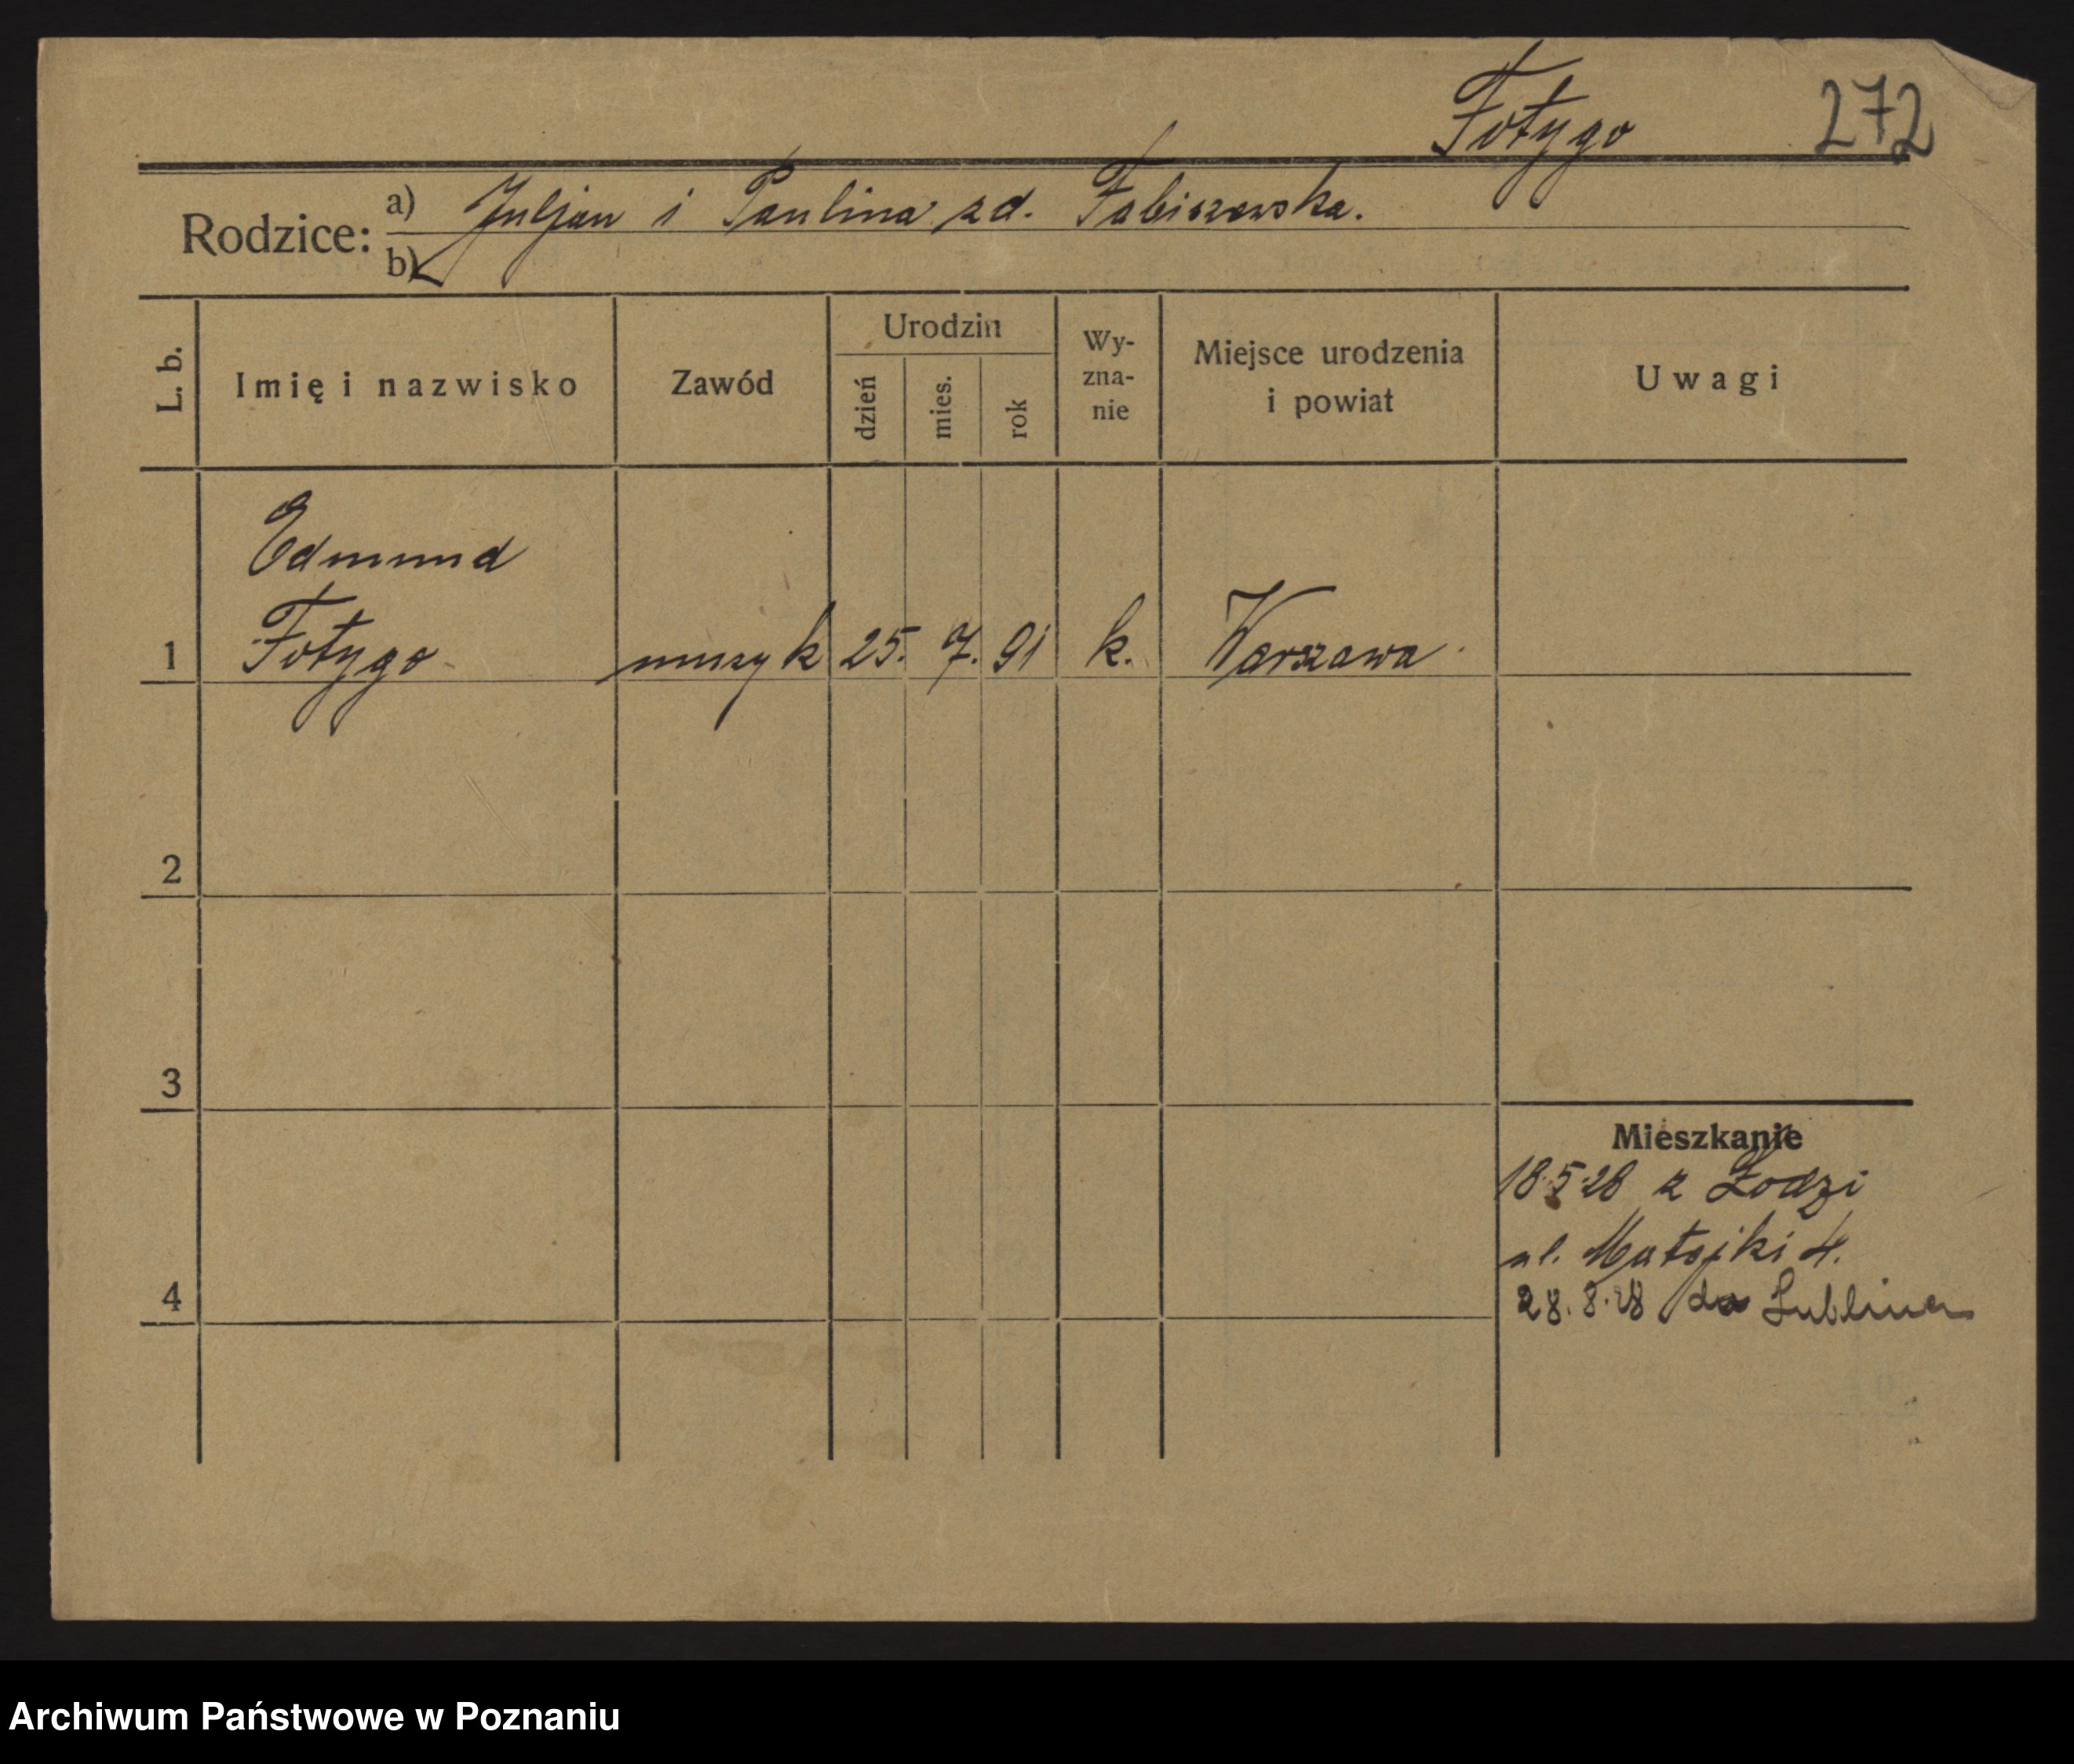 Fotygo 272
Rodzice: a) Juljan i Paulina zd. Fabiszewska.
b)
L. b.
Imię i nazwisko
Zawód
Urodzin
dzień
mies.
rok
Wy-
zna-
nie
Miejsce urodzenia
i powiat
Uwagi
Edmund
1 Fotygo muzyk 25. 7. 91 k. Warszawa
2
3
Mieszkanie
18.5.28 z Łodzi
ul. Matejki 4.
4 28.8.28 do Lublina
Archiwum Państwowe w Poznaniu